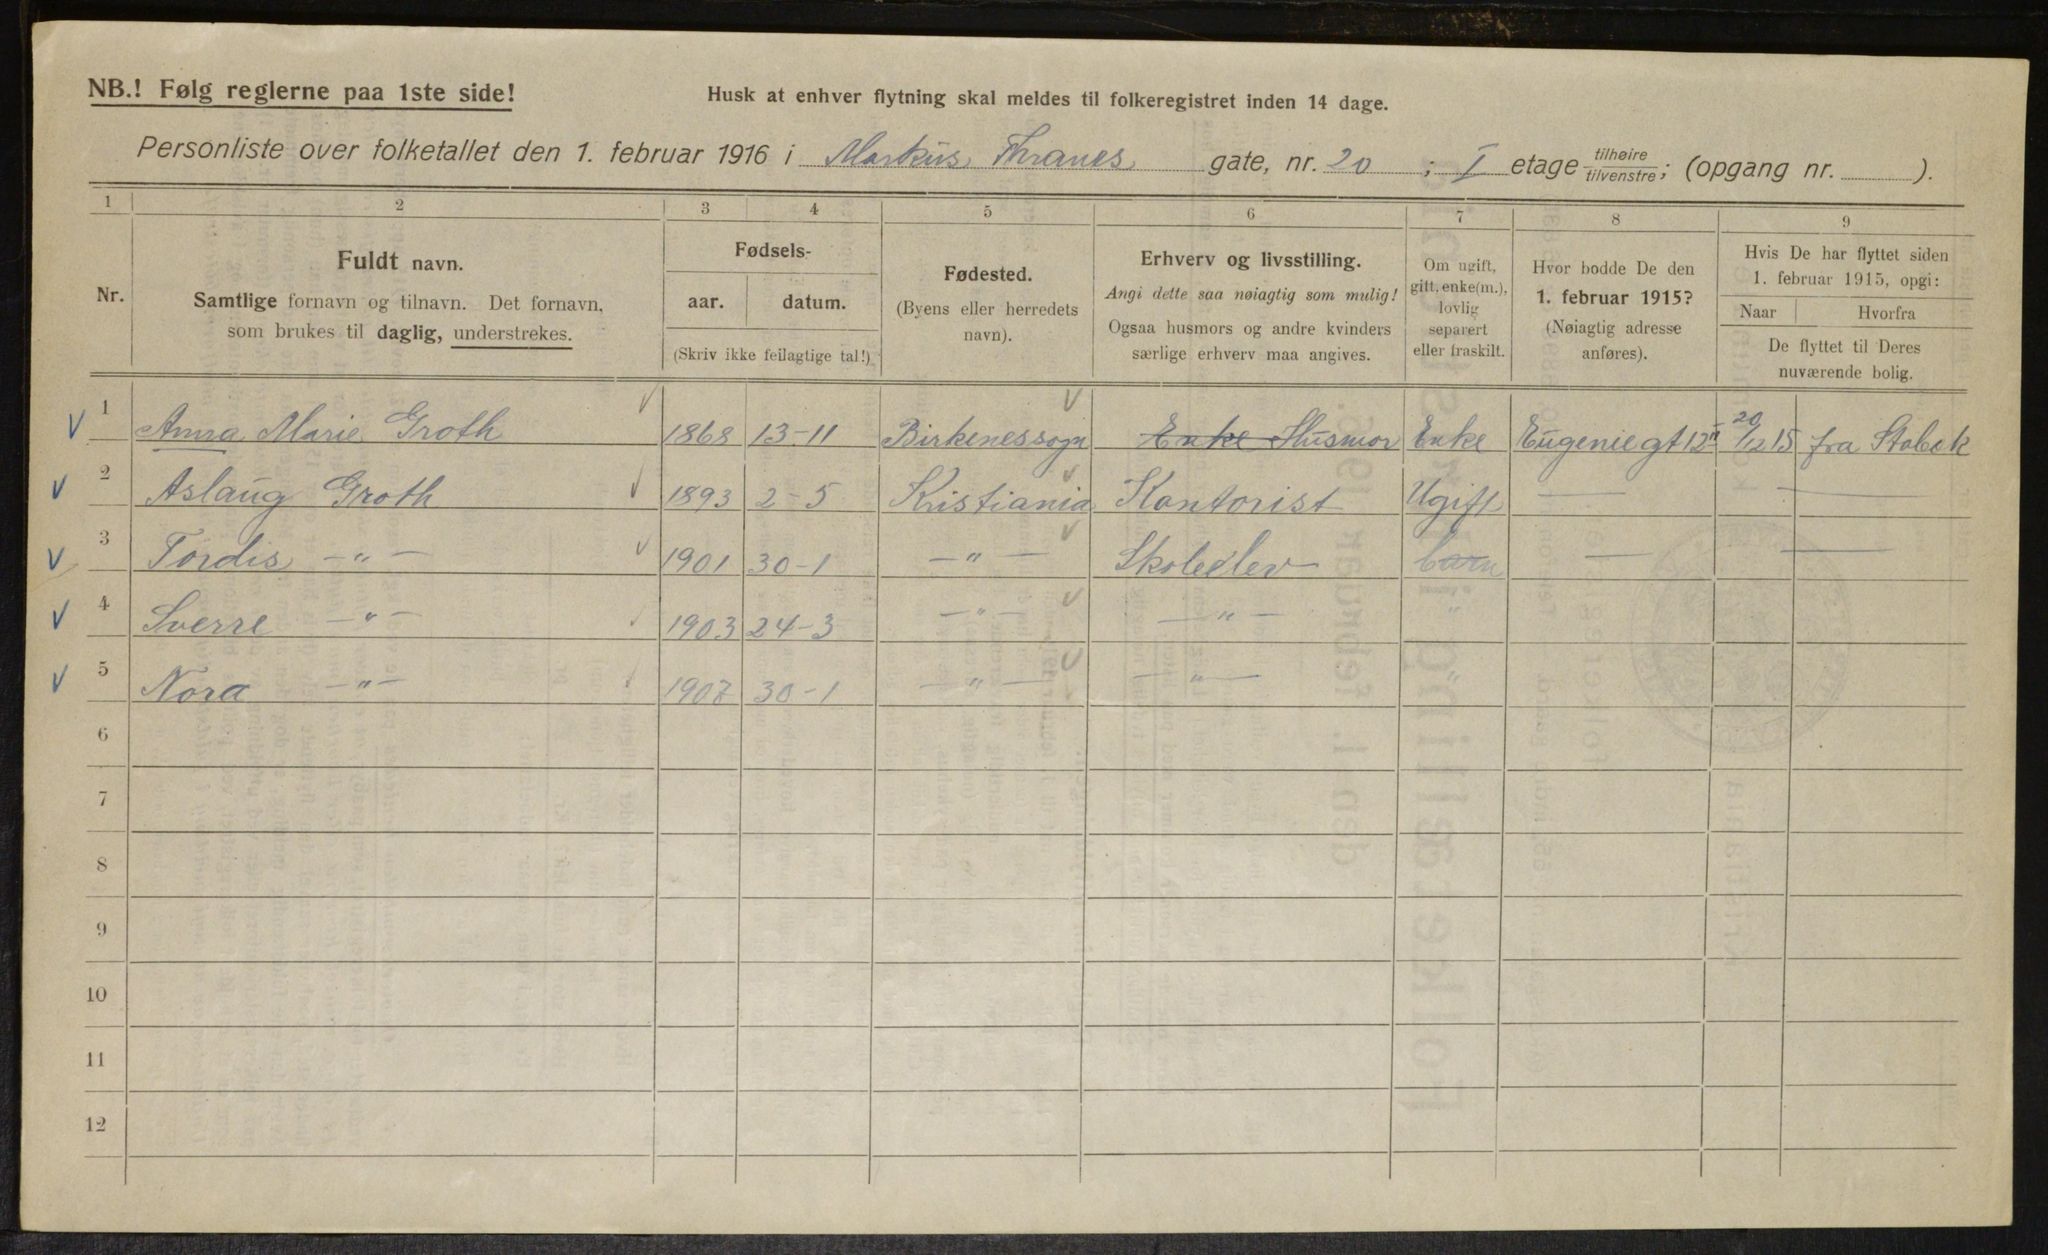 NB.! Følg reglerne paa 1ste side!
Husk at enhver flytning skal meldes til folkeregistret inden 14 dage.
Personliste over folketallet den 1. februar 1916 i Markus Thranes gate, nr. 20 ; I etage tilhøire tilvenstre; (opgang nr. ).
1 2 3 4 5 6 7 8 9
Nr.
Fuldt navn.
Samtlige fornavn og tilnavn. Det fornavn,
som brukes til daglig, understrekes.
Fødsels-
aar. datum.
(Skriv ikke feilagtige tal!)
Fødested.
(Byens eller herredets
navn).
Erhverv og livsstilling.
Angi dette saa nøiagtig som mulig!
Ogsaa husmors og andre kvinders
særlige erhverv maa angives.
Om ugift,
gitt, enke(m.),
lovlig
separert
eller fraskilt.
Hvor bodde De den
1. februar 1915?
(Nøiagtig adresse
anføres).
Hvis De har flyttet siden
1. februar 1915, opgi:
Naar Hvorfra
De flyttet til Deres
nuværende bolig.
1 Anna Marie Groth 1868 13-11 Birkenessogn Enke Husmor Enke Eugeniegt 12 II 20/12 15 fra Stabek
2 Aslaug Groth 1893 2-5 Kristiania Kontorist Ugift — —
3 Tordis —"— 1901 30-1 —"— Skoleelev barn — —
4 Sverre —"— 1903 24-3 —"— —"— "
5 Nora —"— 1907 30-1 —"— —"— "
6
7
8
9
10
11
12